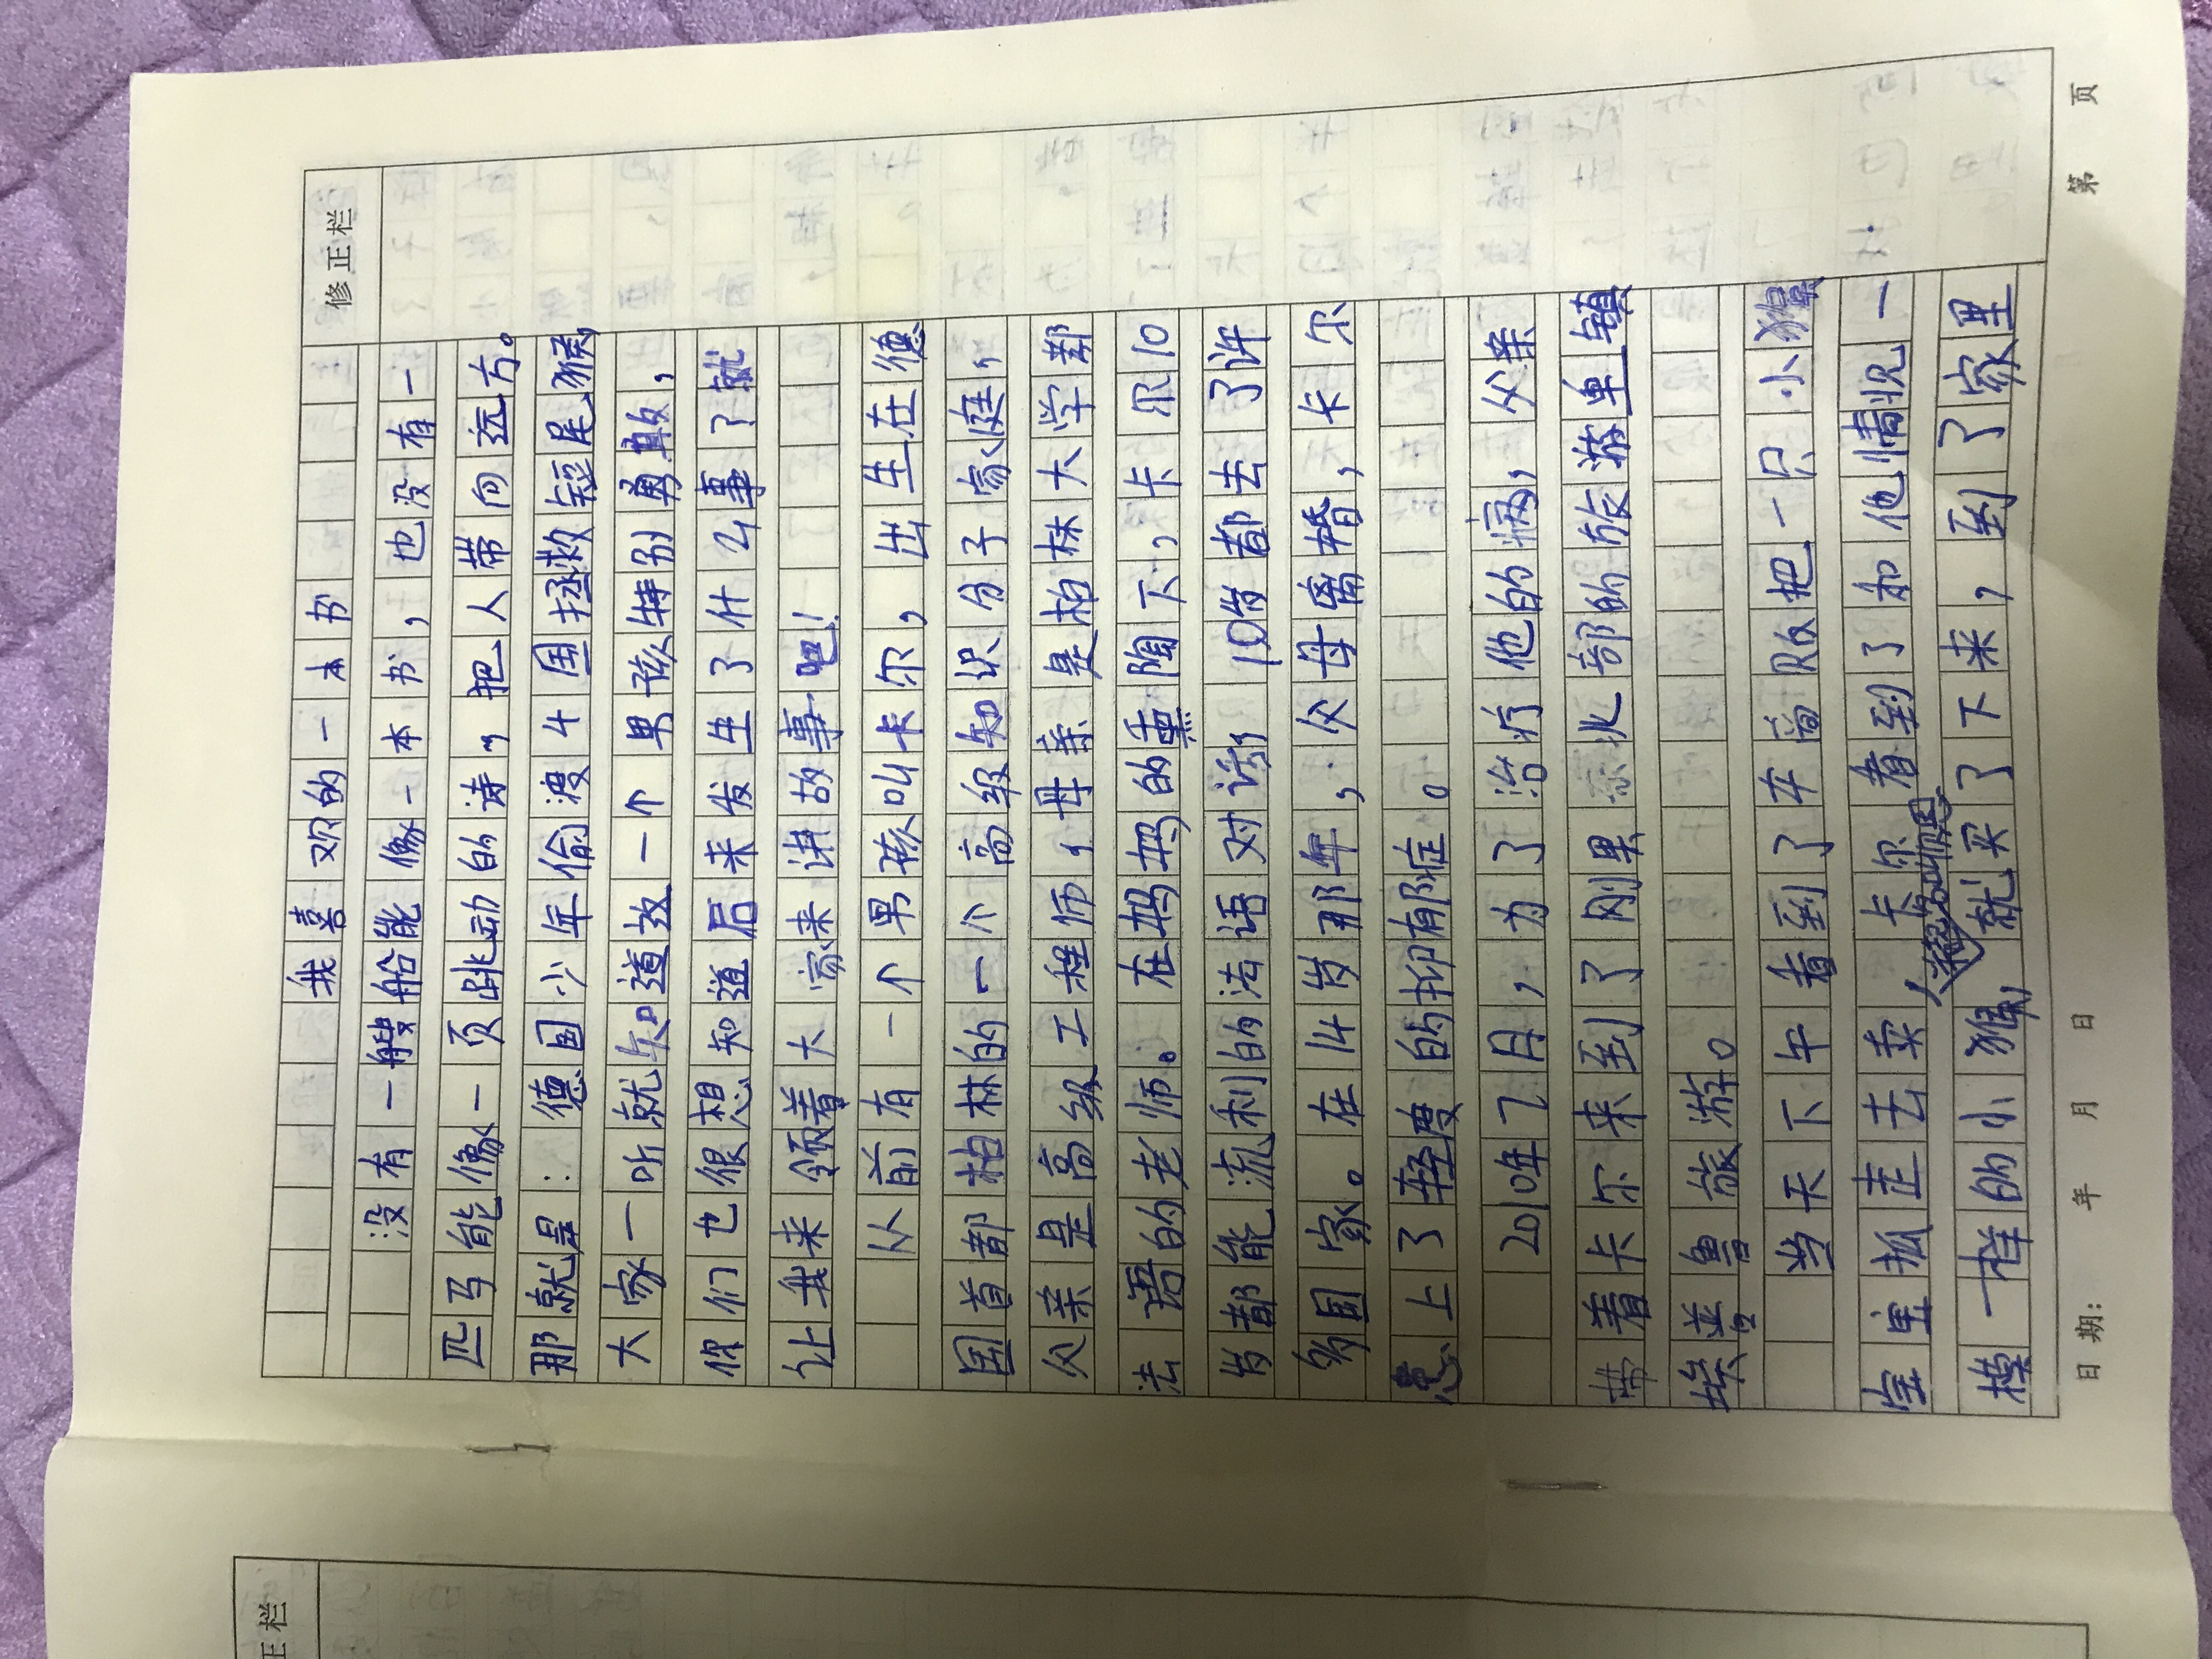 修正栏
我喜欢的一本书
没有一艘船能像一本书，也没有一
匹马能像一页跳动的诗，把人带向远方。
那就是：德国少年偷渡4国拯救短尾猴，
大家一听就知道故一个男孩特别勇敢，
你们也很想知道后来发生了什么事了就
让我来领着大家来讲故事吧！
从前有一个男孩叫卡尔，出生在德
国首都柏林的一个高级知识分子家庭，
父亲是高级工程师，母亲是柏林大学都
法语的老师。在妈妈的熏陶下，卡尔10
岁都能流利的法语对话了10岁都去了许
多国家。在14岁那年，父母离婚，卡尔
患上了轻度的抑有郁症。
2010年7月，为了治疗他的病，父亲
带着卡尔来到了刚果东北部的旅游重镇
埃普鲁旅游。
当天下午看到了车商贩把一只小猴
宝宝抓走去卖卡尔看到了和他情况一
模一样的小猴，就买了下来，到了家里
日期： 年 月 日
第 页
正栏